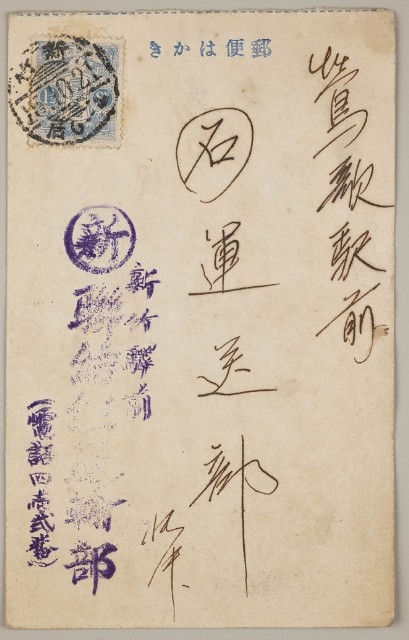 郵便はかき
鶯歌駅前
石運送部
新
新竹驛前
聯
運輸部
(電話四壱弐番)